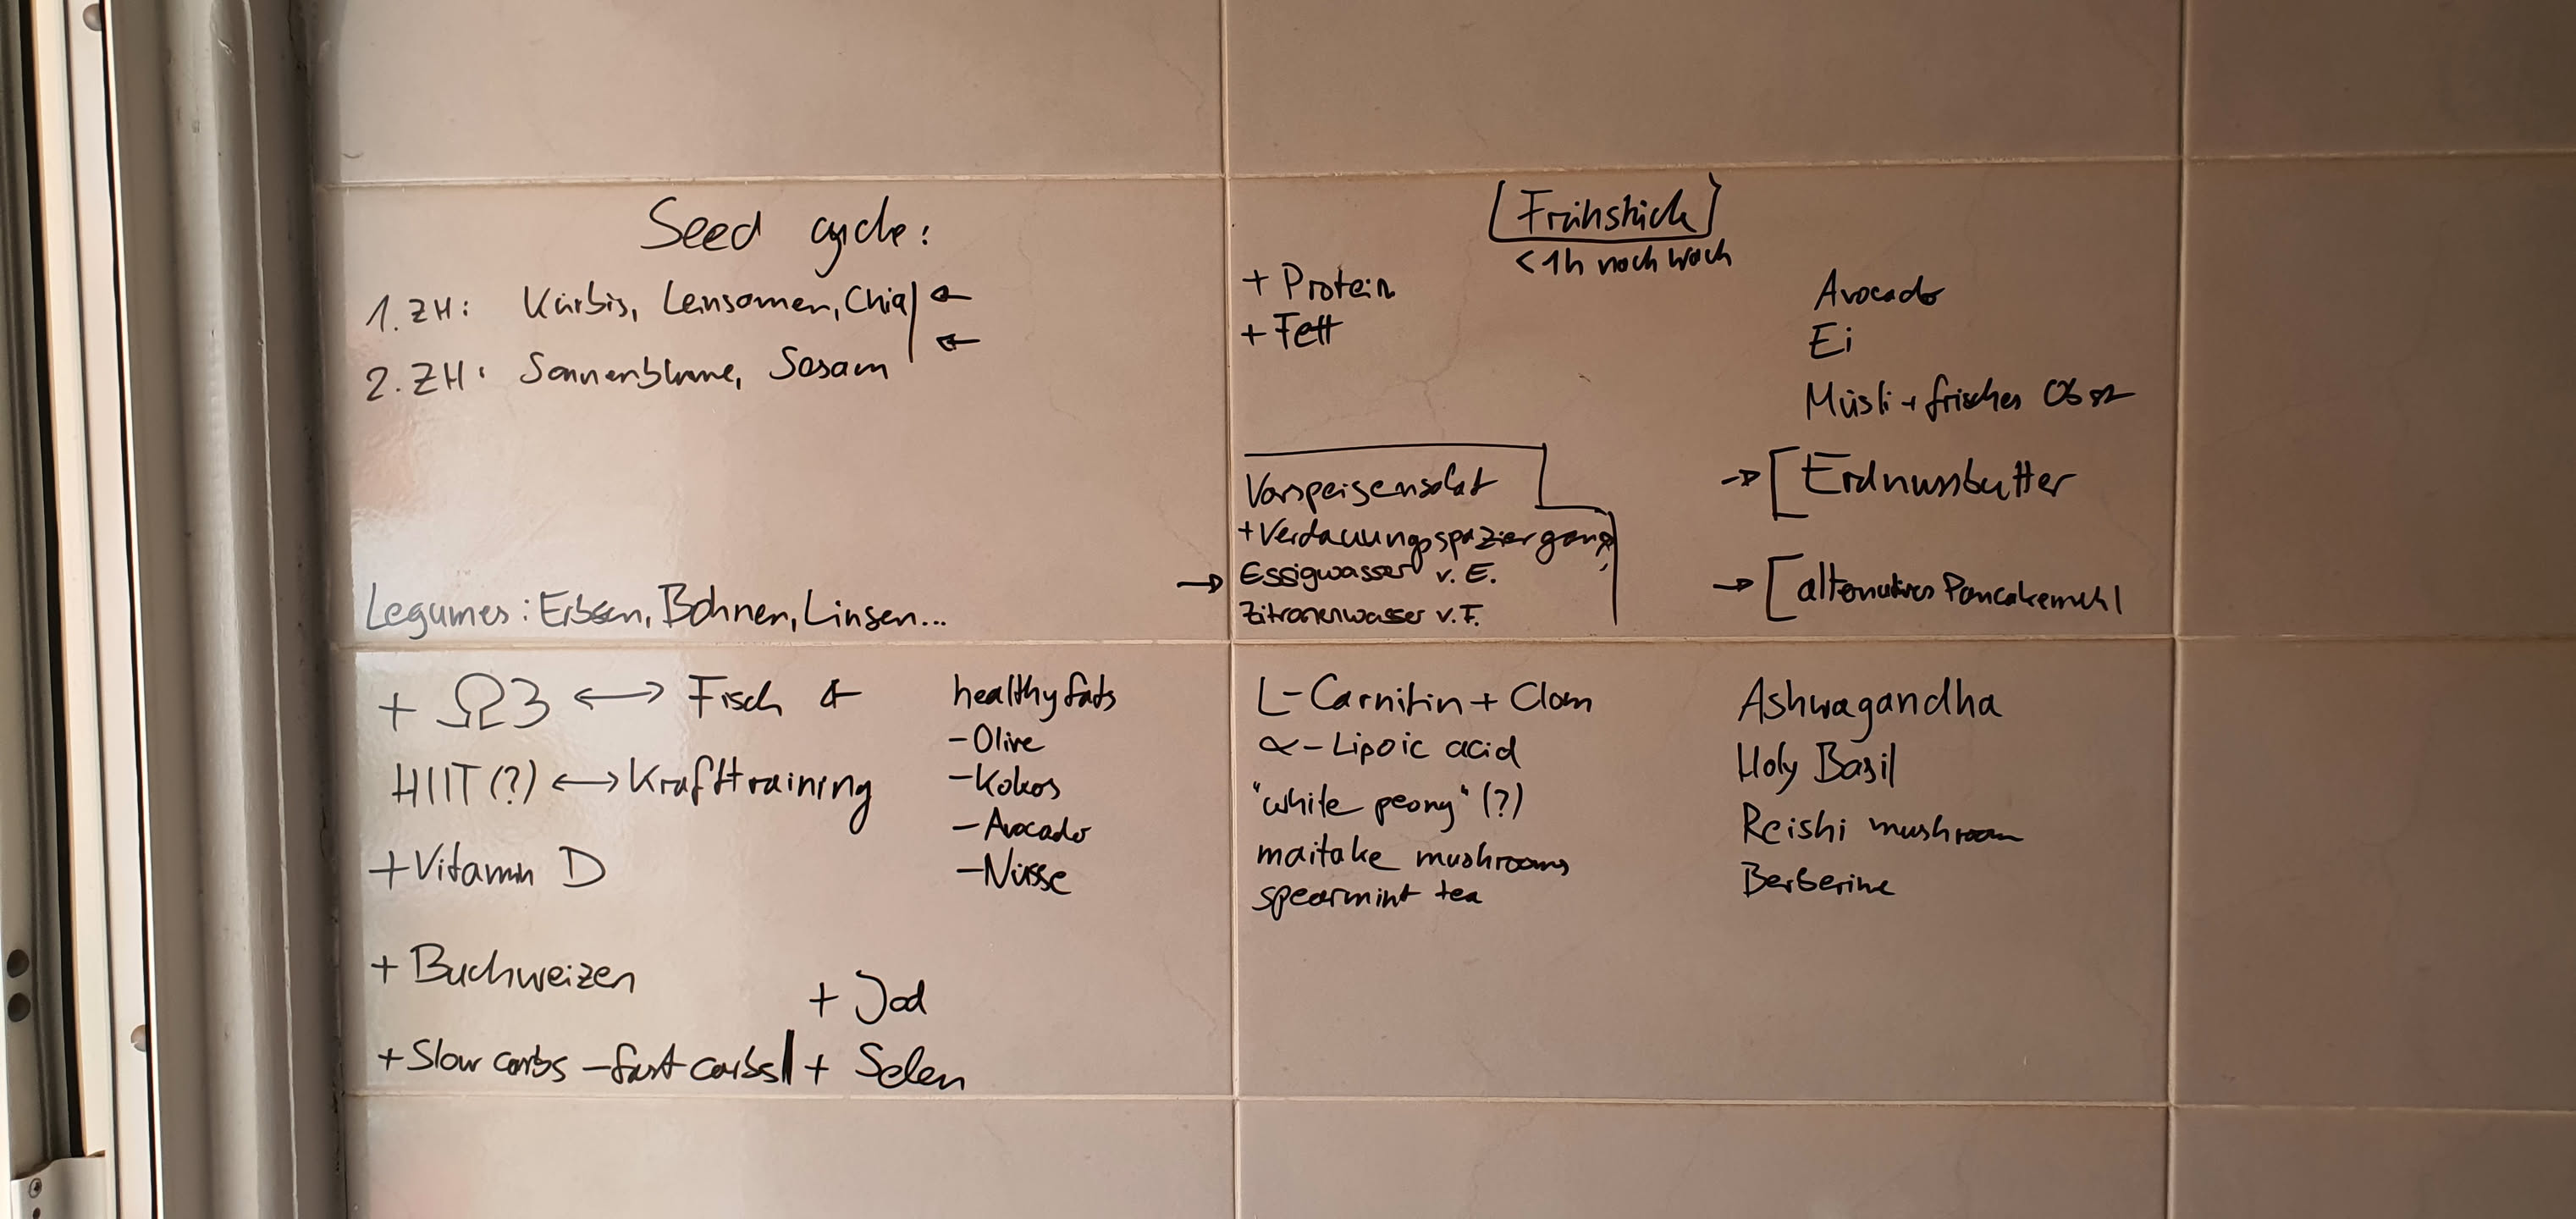 Seed cycle:
1. ZH: Kürbis, Leinsamen, Chia ←
2. ZH: Sonnenblume, Sesam ←
Legumes: Erbsen, Bohnen, Linsen...
[Frühstück]
<1h nach wach
+ Protein
+ Fett
Avocado
Ei
Müsli + frisches Obst
→ [Erdnussbutter
→ [alternatives Pancakemehl
Vorspeisensalat
+ Verdauungsspaziergang
→ Essigwasser v. E.
Zitronenwasser v. F.
+ Ω3 ↔ Fisch ←
HIIT (?) ↔ Krafttraining
+ Vitamin D
+ Buchweizen
+ Slow carbs - fast carbs
+ Jod
+ Selen
healthy fats
- Olive
- Kokos
- Avocado
- Nüsse
L-Carnitin + Clom
α-Lipoic acid
"white peony" (?)
maitake mushrooms
spearmint tea
Ashwagandha
Holy Basil
Reishi mushroom
Berberine